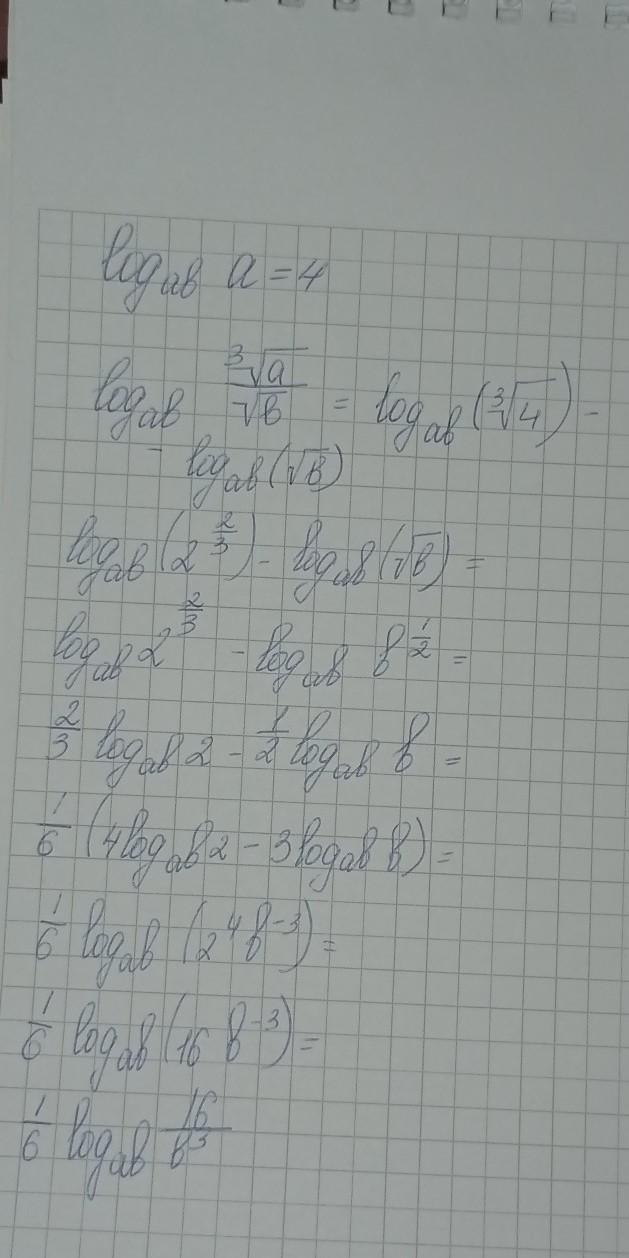 log_ab a = 4
log_ab ∛a/√b = log_ab (∛4) -
- log_ab (√b)
log_ab (2^(2/3)) - log_ab (√b) =
log_ab 2^(2/3) - log_ab b^(1/2) =
2/3 log_ab 2 - 1/2 log_ab b =
1/6 (4 log_ab 2 - 3 log_ab b) =
1/6 log_ab (2^4 b^-3) =
1/6 log_ab (16 b^-3) =
1/6 log_ab 16/b^3